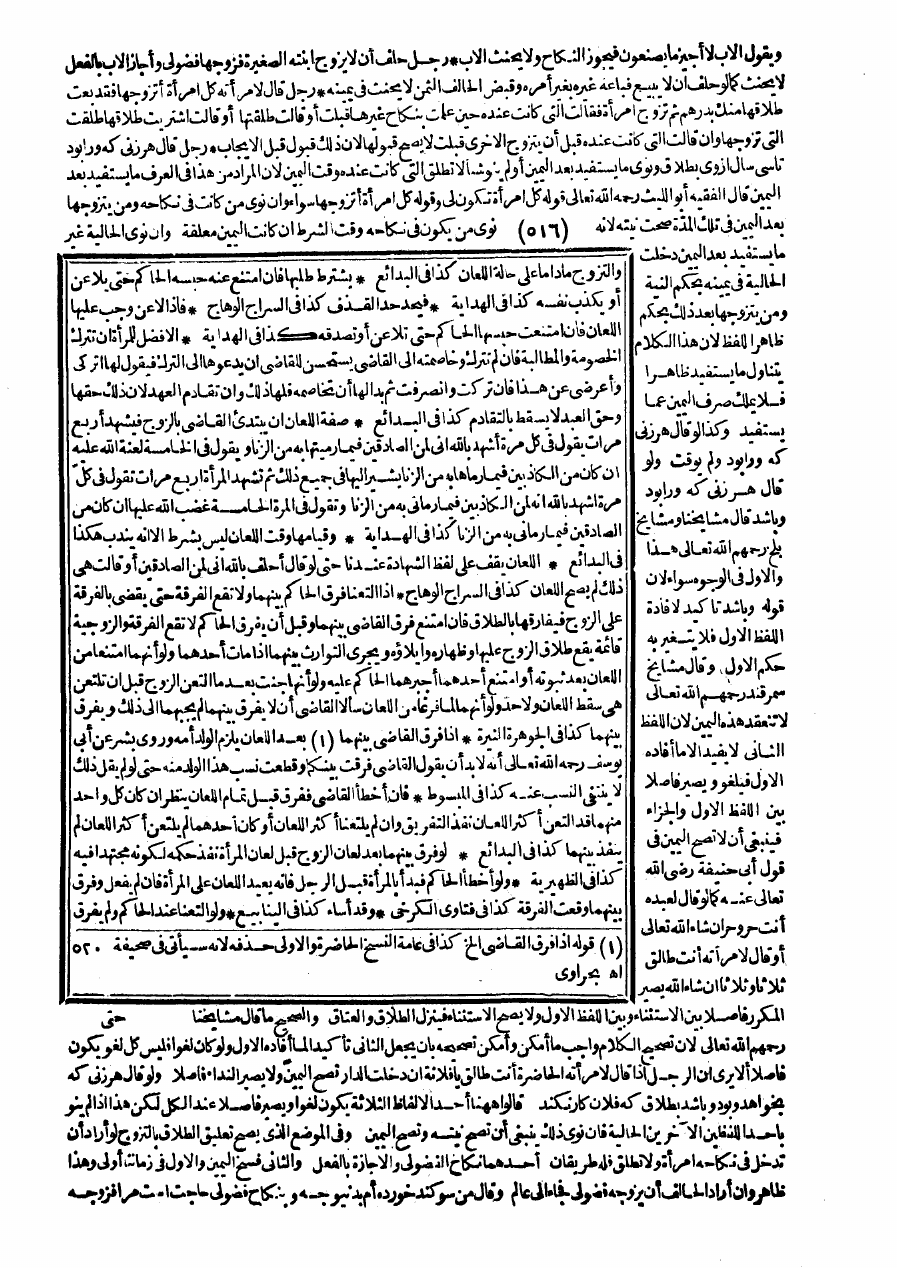 ويقول الاب لا أجيز ما يصنعون فيجوز النكاح ولا يحنث الاب * رجل حلف أن لا يزوج ابنته الصغيرة فزوجها فضولى وأجاز الاب بالفعل
لا يحنث كما لو حلف ان لا يبيع فباعه غيره بغير أمره وقبض الحالف الثمن لا يحنث فى يمينه * رجل قال لامرأته كل امرأة أتزوجها فقد بعت
طلاقها منك بدرهم ثم تزوج امرأة فقالت التى كانت عنده حين علمت بنكاح غيرها قبلت أو قالت طلقتها أو قالت اشتريت طلاقها طلقت
التى تزوجها وان قالت التى كانت عنده قبل أن يتزوج الاخرى قبلت لا يصح قبولها لان ذلك قبول قبل الايجاب * رجل قال هر زنى كه ورا بود
تاسى سال ازوى بطلاق ونوى ما يستفيد بعد اليمين أو لم ينو شيأ لا تطلق التى كانت عنده وقت اليمين لان المراد من هذا فى العرف ما يستفيد بعد
اليمين قال الفقيه أبو الليث رحمه الله تعالى قوله كل امرأة تكون لى وقوله كل امرأة أتزوجها سواء وان نوى من كانت فى نكاحه ومن يتزوجها
بعد اليمين فى تلك المدة صحت نيته لانه (٥١٦) نوى من يكون فى نكاحه وقت الشرط ان كانت اليمين معلقة وان نوى الحالية غير
ما يستفيد بعد اليمين دخلت
الحالية فى يمينه بحكم النية
ومن يتزوجها بعد ذلك بحكم
ظاهر اللفظ لان هذا الكلام
يتناول ما يستفيد ظاهرا
فلا يملك صرف اليمين عما
يستفيد وكذا لو قال هر زنى
كه ورا بود ولم يوقت ولو
قال هر زنى كه ورا بود
وباشد قال مشايخنا ومشايخ
بلخ رحمهم الله تعالى هذا
والاول فى الوجوه سواء لان
قوله وباشد تاكيد لافادة
اللفظ الاول فلا يتغير به
حكم الاول وقال مشايخ
سمرقند رحمهم الله تعالى
لا تنعقد هذه اليمين لان اللفظ
الثانى لا يفيد الا ما أفاده
الاول فيلغو ويصير فاصلا
بين اللفظ الاول والجزاء
فينبغى أن لا تصح اليمين فى
قول أبى حنيفة رضى الله
تعالى عنه كما لو قال لعبده
أنت حر وحر ان شاء الله تعالى
أو قال لامرأته أنت طالق
ثلاثا وثلاثا ان شاء الله يصير
والتزوج ما داما على حالة اللعان كذا فى البدائع * يشترط طلبها فان امتنع عنه حبسه الحاكم حتى يلاعن
أو يكذب نفسه كذا فى الهداية * فيحد حد القذف كذا فى السراج الوهاج * فاذا لاعن وجب عليها
اللعان فان امتنعت حبسها الحاكم حتى تلاعن أو تصدقه كذا فى الهداية * الافضل للمرأة ان تترك
الخصومة والمطالبة فان لم تترك وخاصمته الى القاضى يستحسن للقاضى ان يدعوها الى الترك فيقول لها اتركى
وأعرضى عن هذا فان تركت وانصرفت ثم بدا لها أن تخاصمه فلها ذلك وان تقادم العهد لان ذلك حقها
وحق العبد لا يسقط بالتقادم كذا فى البدائع * صفة اللعان ان يبتدئ القاضى بالزوج فيشهد أربع
مرات يقول فى كل مرة أشهد بالله انى لمن الصادقين فيما رميتها به من الزنا ويقول فى الخامسة لعنة الله عليه
ان كان من الكاذبين فيما رماها به من الزنا يشير اليها فى جميع ذلك ثم تشهد المرأة اربع مرات تقول فى كل
مرة اشهد بالله انه لمن الكاذبين فيما رمانى به من الزنا وتقول فى المرة الخامسة غضب الله عليها ان كان من
الصادقين فيما رمانى به من الزنا كذا فى الهداية * وقيامها وقت اللعان ليس بشرط الا انه يندب هكذا
فى البدائع * اللعان يقف على لفظ الشهادة عندنا حتى لو قال أحلف بالله انى لمن الصادقين أو قالت هى
ذلك لم يصح اللعان كذا فى السراج الوهاج * اذا التعنا فرق الحاكم بينهما ولا تقع الفرقة حتى يقضى بالفرقة
على الزوج فيفارقها بالطلاق فان امتنع فرق القاضى بينهما وقبل أن يفرق الحاكم لا تقع الفرقة والزوجية
قائمة يقع طلاق الزوج عليها وظهاره وايلاؤه ويجرى التوارث بينهما اذا مات أحدهما ولو أنهما امتنعا من
اللعان بعد ثبوته أو امتنع أحدهما أجبرهما الحاكم عليه ولو أنها جنت بعد ما التعن الزوج قبل ان تلتعن
هى سقط اللعان ولا حد ولو أنهما لما فرغا من اللعان سألا القاضى أن لا يفرق بينهما لم يجبهما الى ذلك ويفرق
بينهما كذا فى الجوهرة النيرة * اذا فرق القاضى بينهما (١) بعد اللعان يلزم الولد أمه وروى بشر عن أبى
يوسف رحمه الله تعالى أنه لا بد أن يقول القاضى فرقت بينكما وقطعت نسب هذا الولد منه حتى لو لم يقل ذلك
لا ينتفى النسب عنه كذا فى المبسوط * فان أخطأ القاضى ففرق قبل تمام اللعان ينظر ان كان كل واحد
منهما قد التعن أكثر اللعان نفذ التفريق وان لم يلتعنا أكثر اللعان أو كان أحدهما لم يلتعن أكثر اللعان لم
ينفذ بينهما كذا فى البدائع * لو فرق بينهما بعد لعان الزوج قبل لعان المرأة نفذ حكمه لكونه مجتهدا فيه
كذا فى الظهيرية * ولو أخطأ الحاكم فبدأ بالمرأة قبل الرجل فانه يعيد اللعان على المرأة فان لم يفعل وفرق
بينهما وقعت الفرقة كذا فى فتاوى الكرخى * وقد أساء كذا فى الينابيع * ولو التعنا عند الحاكم ولم يفرق
(١) قوله اذا فرق القاضى الخ كذا فى عامة النسخ الحاضرة والاولى حذفه لانه سيأتى فى صحيفة ٥٢٠
اه بحراوى
المكرر فاصلا بين الاستثناء وبين اللفظ الاول ولا يصح الاستثناء فينزل الطلاق والعتاق والصحيح ما قال مشايخنا حتى
رحمهم الله تعالى لان تصحيح الكلام واجب ما أمكن وأمكن تصحيحه بان يجعل الثانى تأكيدا لما أفاده الاول ولو كان لغوا فليس كل لغو يكون
فاصلا ألا يرى ان الرجل اذا قال لامرأته الحاضرة أنت طالق يا فلانة ان دخلت الدار تصح اليمين ولا يصير النداء فاصلا ولو قال هر زنى كه
بخواهد وبود وباشد بطلاق كه فلان كار نكند قالوا ههنا أحد الالفاظ الثلاثة يكون لغوا ويصير فاصلا عند الكل لكن هذا اذا لم ينو
باحد اللفظين الآخرين الحالية فان نوى ذلك ينبغى أن تصح نيته وتصح اليمين وفى الموضع الذى يصح تعليق الطلاق بالتزوج لو أراد أن
تدخل فى نكاحه امرأة ولا تطلق فله طريقان أحدهما نكاح الفضولى والاجازة بالفعل والثانى فسخ اليمين والاول فى زماننا أولى وهذا
ظاهر وان أراد الحالف أن يزوجه فضولى فجاء الى عالم وقال من سوكند خورده أم بدين وجه وبنكاح فضولى حاجت است مرا فزوجه